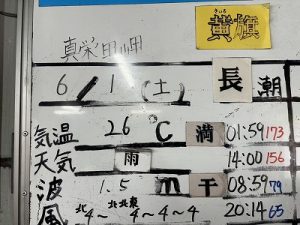 きいろ
黄旗
真栄田岬
6/1(土) 長潮
気温 26℃ 満 01:59 173
天気 雨 14:00 156
波 1.5m 干 08:59 79
風 北4~ 北北東4~4~4 20:14 65